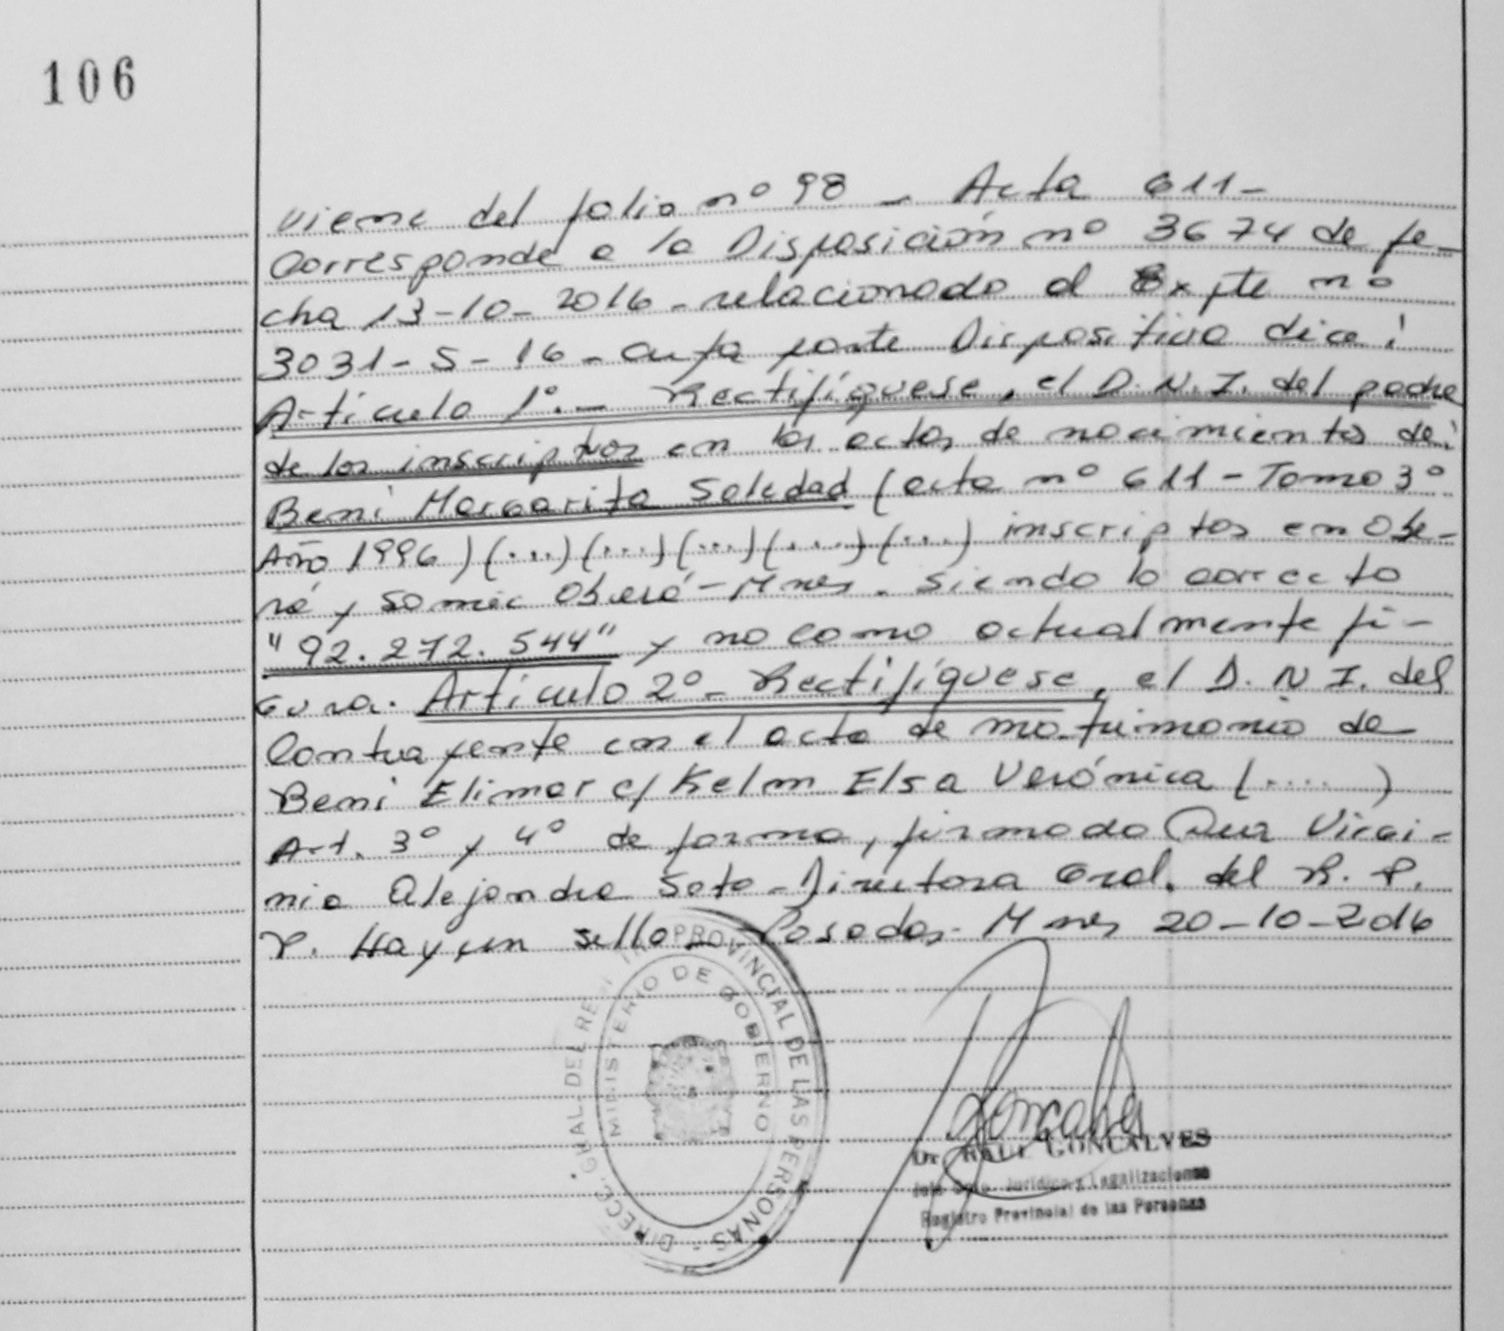 106
viene del folio nº 98 - Acta 611-
Corresponde a la Disposición nº 3674 de fe-
cha 13-10-2016 - relacionado al Expte nº
3031-S-16 - cuya parte Dispositiva dice:
Artículo 1º.- Rectifíquese, el D.N.I. del padre
de los inscriptos en las actas de nacimientos de:
Beni Margarita Soledad (acta nº 611 - Tomo 3º
Año 1996) (...) (...) (...) (....) (...) inscriptos en Obe-
rá y Somic Oberá - Mnes. Siendo lo correcto
"92.272.544" y no como actualmente fi-
gura. Artículo 2º- Rectifíquese, el D.N.I. del
Contrayente en el acta de matrimonio de
Beni Elimar c/ Kelm Elsa Verónica (.....)
Art. 3º y 4º de forma, firmado Dra Virgi-
nia Alejandra Soto - Directora Gral. del R. P.
P. Hay un sello - Posadas - Mnes 20-10-2016
DIRECC. GRAL. DEL PROVINCIAL DE LAS PERSONAS
MINISTERIO DE GOBIERNO
Goncalves
Dr. RAUL GONCALVES
Jurídica y Legalizaciones
Registro Provincial de las Personas